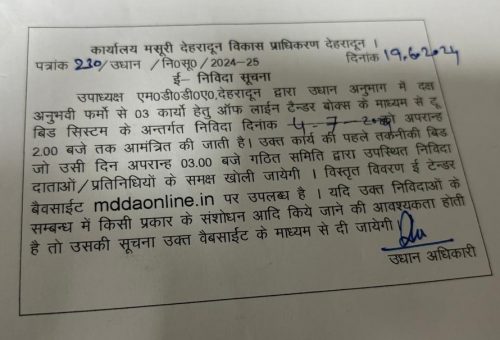 कार्यालय मसूरी देहरादून विकास प्राधिकरण देहरादून ।
पत्रांक 230/उधान /नि0सू0/2024-25 दिनांक 19.6.2024
ई– निविदा सूचना
उपाध्यक्ष एम0डी0डी0ए0,देहरादून द्वारा उधान अनुभाग में दक्ष
अनुभवी फर्मो से 03 कार्यो हेतु ऑफ लाईन टैन्डर बोक्स के माध्यम से टू
बिड सिस्टम के अन्तर्गत निविदा दिनांक 4-7-2024 अपरान्ह
2.00 बजे तक आमंत्रित की जाती है। उक्त कार्य की पहले तकनीकी बिड
जो उसी दिन अपरान्ह 03.00 बजे गठित समिति द्वारा उपस्थित निविदा
दाताओं/प्रतिनिधियों के समक्ष खोली जायेगी । विस्तृत विवरण ई टेन्डर
बैवसाईट mddaonline.in पर उपलब्ध है । यदि उक्त निविदाओं के
सम्बन्ध में किसी प्रकार के संशोधन आदि किये जाने की आवश्यकता होती
है तो उसकी सूचना उक्त वैबसाईट के माध्यम से दी जायेगी।
उधान अधिकारी